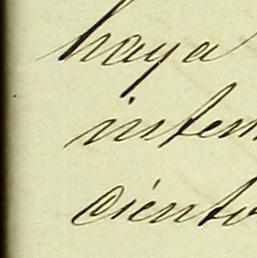 haya
inten
ciento